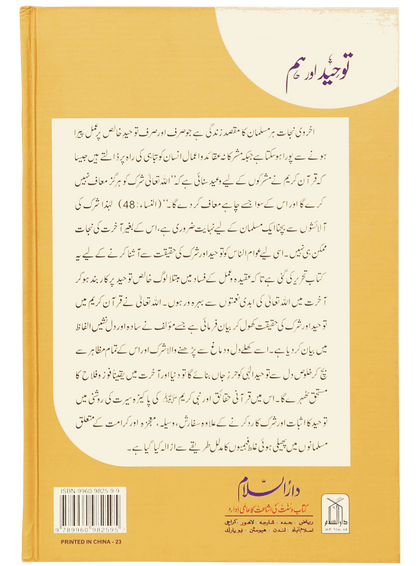 توحید اور ہم
اخروی نجات ہر مسلمان کا مقصد زندگی ہے جو صرف اور صرف توحید خالص پر عمل پیرا
ہونے سے پورا ہوسکتا ہے جبکہ مشرکانہ عقائد و اعمال انسان کو تباہی کی راہ پر ڈالتے ہیں جیسا
کہ قرآن کریم نے مشرکوں کے لیے وعید سنائی ہے کہ "اللہ تعالی شرک کو ہرگز معاف نہیں
کرے گا اور اس کے سوا جسے چاہے معاف کر دے گا۔" (النساء: 48) لہٰذا شرک کی
آلائشوں سے بچنا ایک مسلمان کے لیے نہایت ضروری ہے، اس کے بغیر آخرت کی نجات
ممکن ہی نہیں۔ اسی لیے عوام الناس کو توحید اور شرک کی حقیقت سے آشنا کرنے کے لیے یہ
کتاب تحریر کی گئی ہے تاکہ عقیدہ و عمل کے فساد میں مبتلا لوگ خالص توحید پر کاربند ہو کر
آخرت میں اللہ تعالی کی ابدی نعمتوں سے بہرہ ور ہوں۔ اللہ تعالی نے قرآن کریم میں
توحید اور شرک کی حقیقت کھول کر بیان فرمائی ہے جسے مؤلف نے سادہ اور دل نشیں الفاظ
میں بیان کر دیا ہے۔ اسے کھلے دل و دماغ سے پڑھنے والا شرک اور اس کے تمام مظاہر سے
بچ کر خلوص دل سے توحید الٰہی کو حرز جاں بنائے گا تو دنیا اور آخرت میں یقیناً فوز و فلاح کا
مستحق ٹھہرے گا۔ اس میں قرآنی حقائق اور نبی کریم ﷺ کی پاکیزہ سیرت کی روشنی میں
توحید کا اثبات اور شرک کا رد کرنے کے علاوہ سفارش، وسیلہ، معجزہ اور کرامت کے متعلق
مسلمانوں میں پھیلی ہوئی غلط فہمیوں کا مدلل طریقے سے ازالہ کیا گیا ہے۔
دارالسلام
کتاب و سنت کی اشاعت کا عالمی ادارہ
ریاض ۰ جدہ ۰ شارجہ ۰ لاہور ۰ کراچی
اسلام آباد ۰ لندن ۰ ہیوسٹن ۰ نیویارک
دارالسلام
ISBN-9960 9825 9 9
9 789960 982595
PRINTED IN CHINA - 23